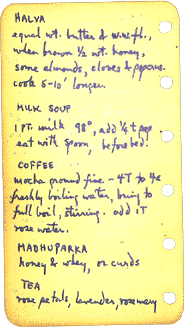 HALVA
equal wt. butter & wwfl.,
when brown ½ wt. honey,
some almonds, cloves &
cook 5-10' longer.
MILK SOUP
1 PT. milk 98°, add ¼ t
eat with spoon, before bed.
COFFEE
mocha ground fine - 4T to 4c
freshly boiling water, bring to
full boil, stirring. add 1T
rose water.
MADHUPARKA
honey & whey, or curds
TEA
rose petals, lavender, rosemary